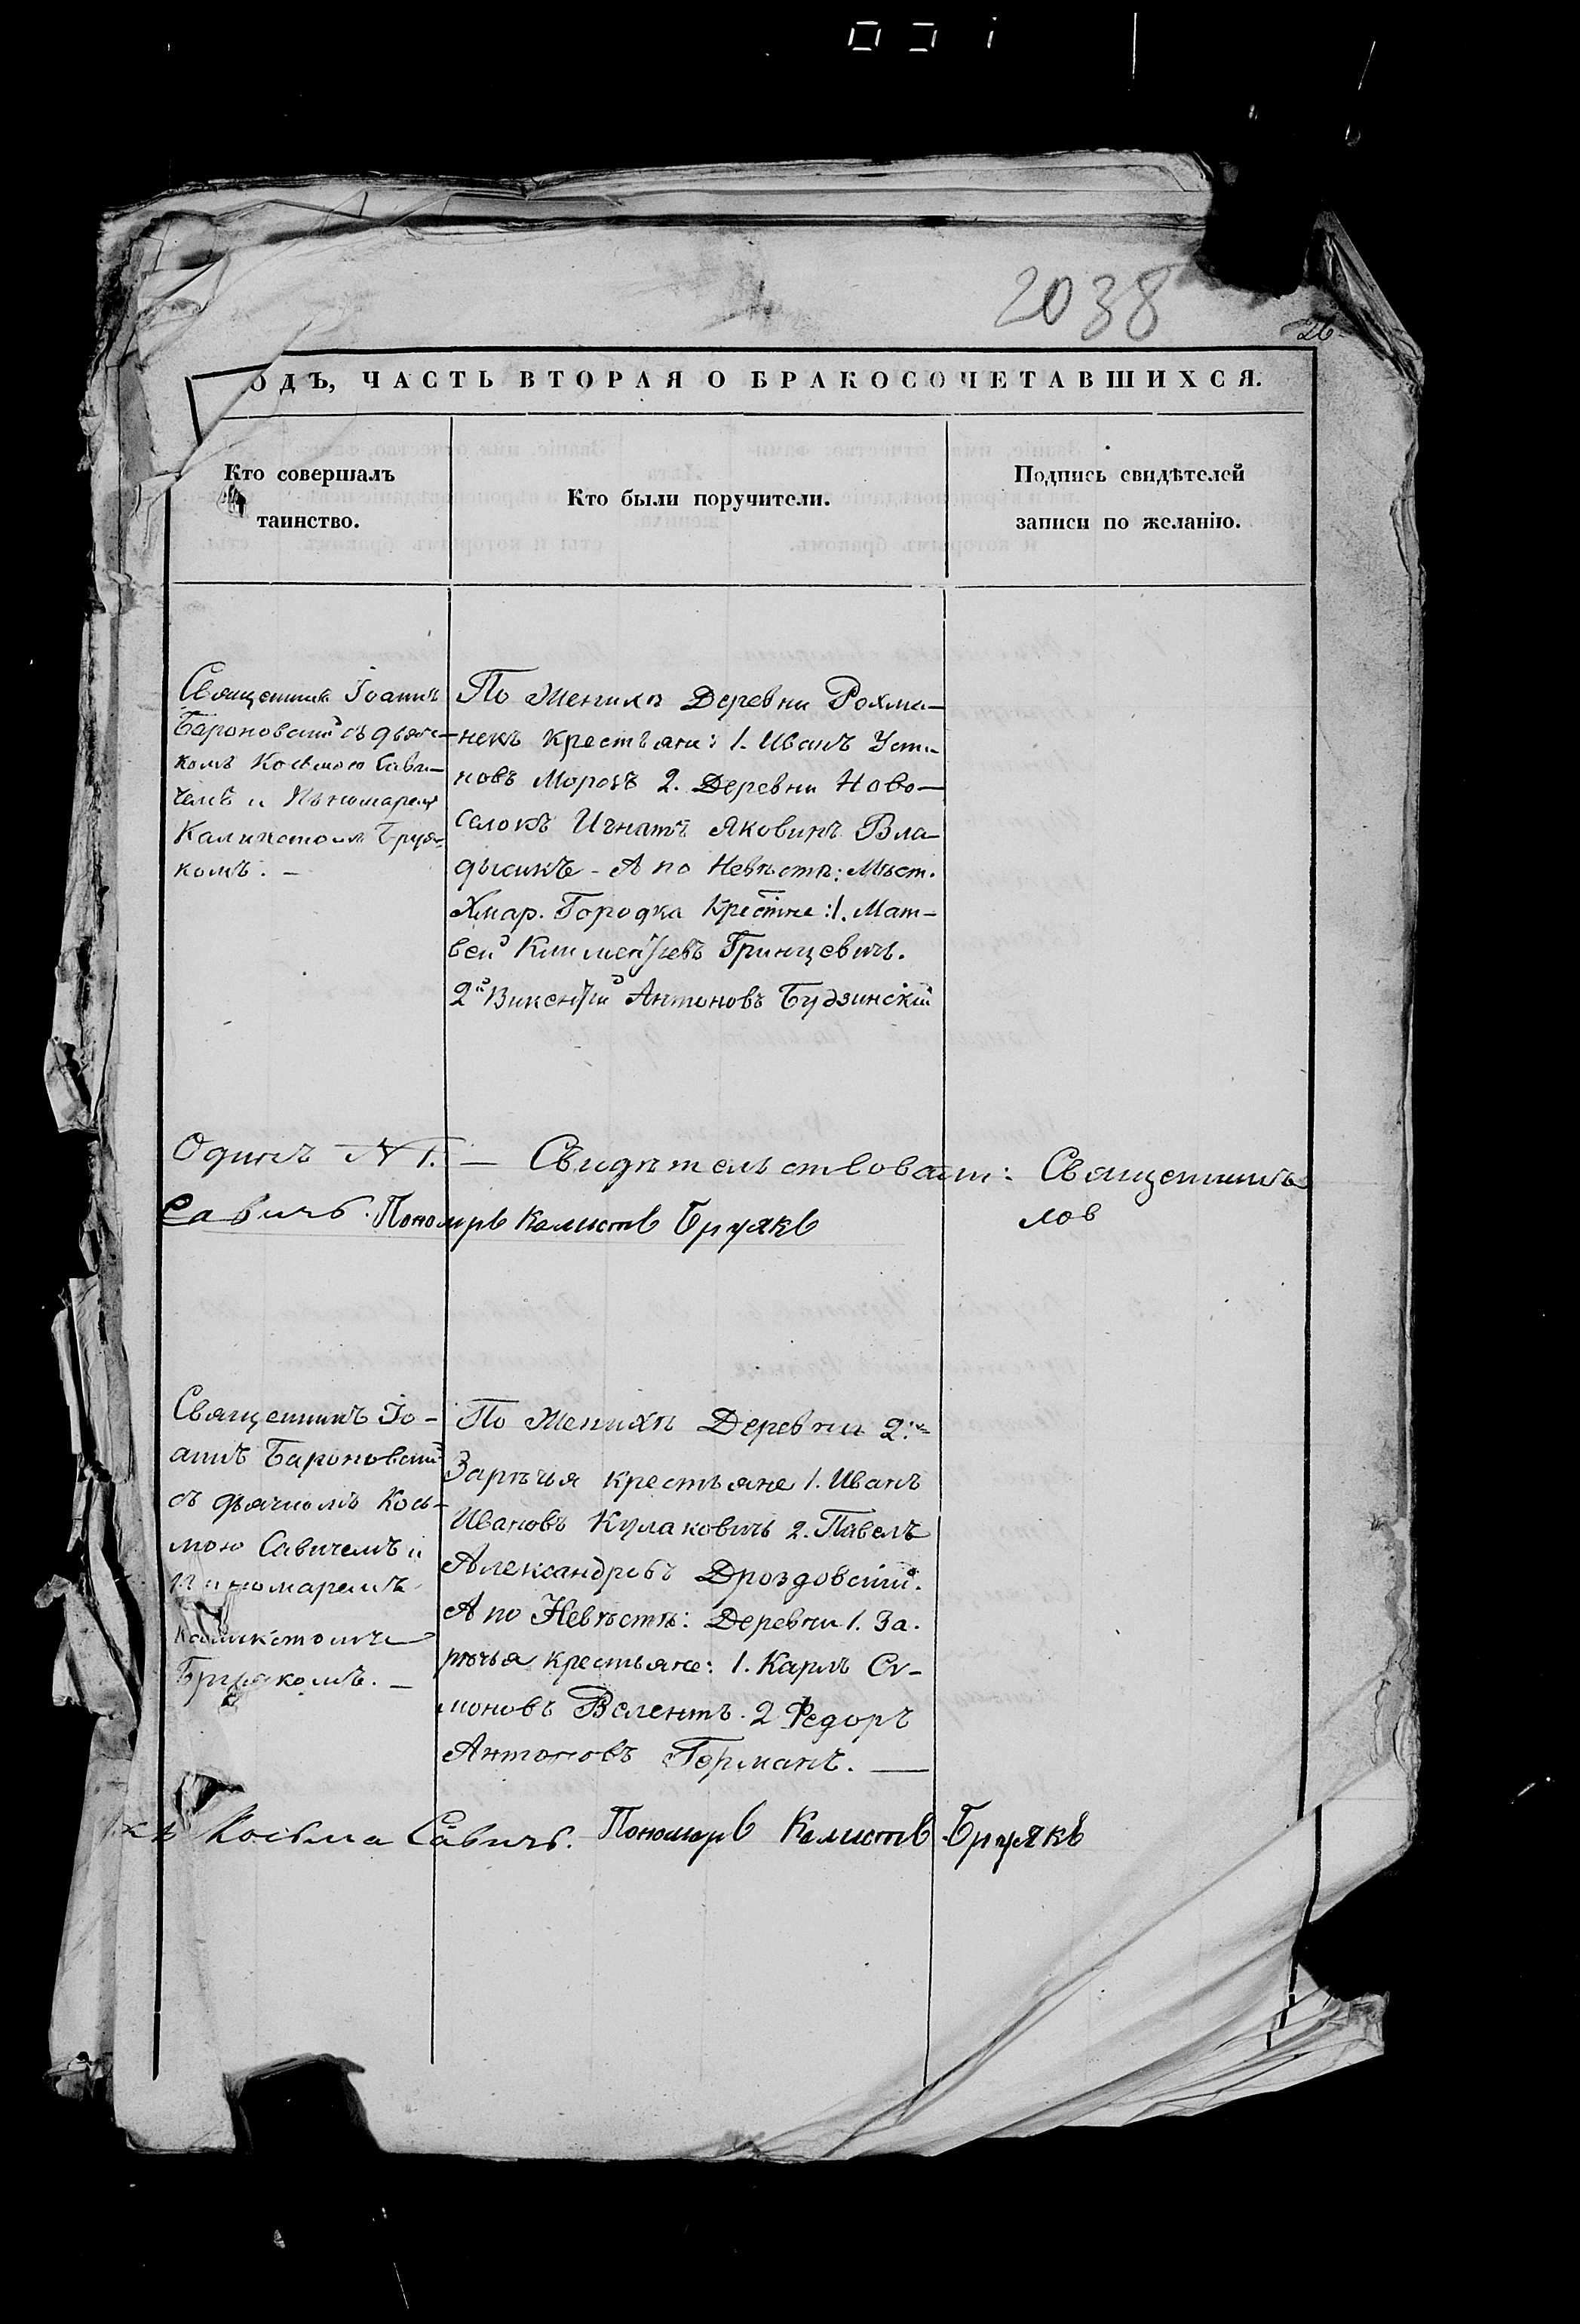 2038
26
ОДЪ, ЧАСТЬ ВТОРАЯ О БРАКОСОЧЕТАВШИХСЯ.
Кто совершалъ
таинство.
Кто были поручители.
Подпись свидѣтелей
записи по желанію.
Священникъ Іоаннъ
Бароновскій съ дьяч-
комъ Косьмою Сави-
чемъ и Пономаремъ
Каликстомъ Бруя-
комъ. –
По Женихѣ Деревни Рохма-
некъ крестьяне: 1. Иванъ Усти-
новъ Морозъ 2. Деревни Ново-
селокъ Игнатъ Яковинъ Вла-
дысикъ - А по Невѣстѣ: Мѣст.
Хмар. Городка Крестяне: 1. Мат-
вей Климентьевъ Гринцевичъ.
2й Викентій Антоновъ Будзинскій
Одинъ № 1. — Свидѣтельствовали: Священникъ
Савичъ. Пономарь Калистъ Бруякъ
лов
Священникъ Іо-
аннъ Бароновскій
съ дьячкомъ Кось-
мою Савичемъ и
Пономаремъ
Каликстомъ
Бруякомъ. –
По Женихѣ Деревни 2.
Зарѣчья крестьяне 1. Иванъ
Ивановъ Кулаковичъ 2. Павелъ
Александровъ Дроздовскій.
А по Невѣстѣ: Деревни 1. За-
рѣчья крестьяне: 1. Карлъ Си-
моновъ Велентъ. 2 Федоръ
Антоновъ Германъ. —
Косьма Савичъ. Пономарь Калистъ Бруякъ